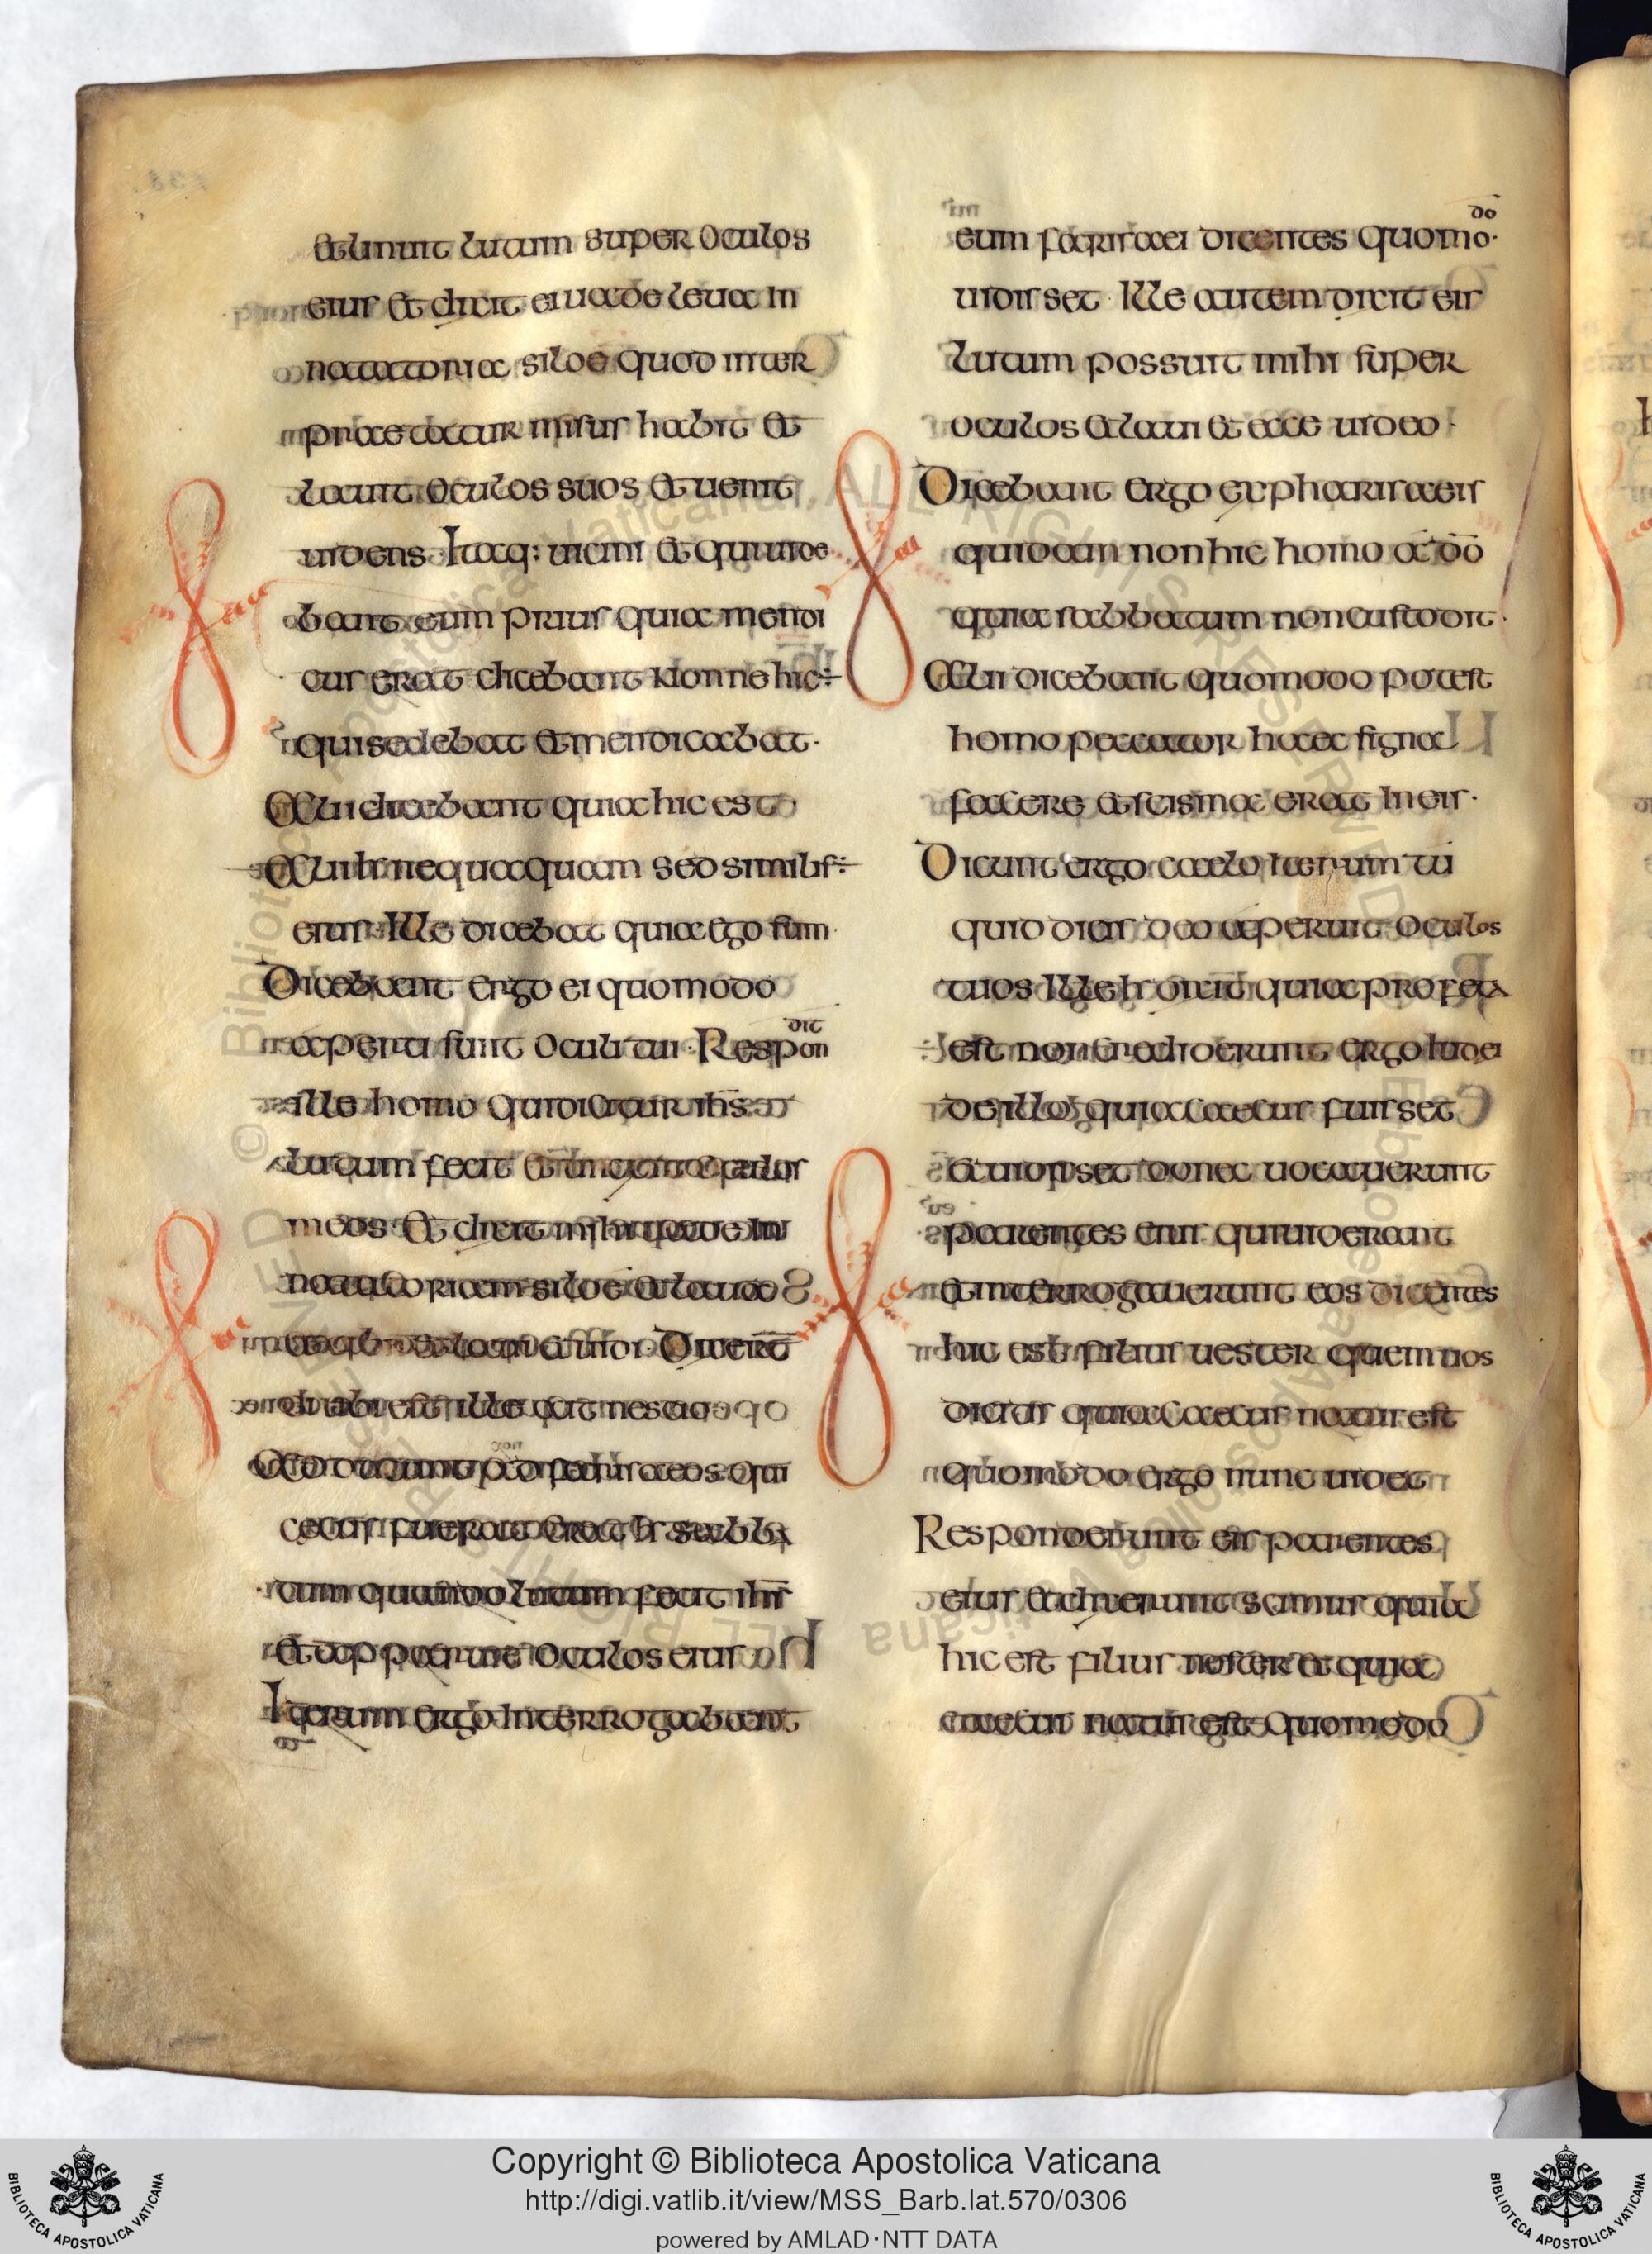 et linuit lutum super oculos
eius et dixit ei uade leua in
natatoria siloe quod inter
praetatur misus habit et
lauit oculos suos et uenit
uidens. Itaq: uicini et qui uide
bant eum prius quia mendi
cus erat dicebant Nonne hic÷
qui sedebat et mendicabat.
Alii dicebant quia hic est
Alii h nequaquam sed similis÷
eius. Ille dicebat quia ego sum.
Dicebant ergo ei quomodo
aperti sunt oculi tui. Respondit
ille homo qui dicitur ihs
lutum fecit et unxit oculos
meos et dixit mihi uade in
natatoriam siloe et laua
et laui et uidi. Dixerunt
ei ubi est ille ait nescio
Adducunt eum ad farisaeos qui
cecus fuerat Erat h sabba
tum quando lutum fecit ihs
et apperuit oculos eius
Iterum ergo interrogabant
eum farisaei dicentes quomodo.
uidisset. Ille autem dixit eis
lutum possuit mihi super
oculos et laui et ecce uideo.
Dicebant ergo ex pharisaeis
quidam non hic homo a dō
quia sabbatum non custodit.
Alii dicebant quomodo potest
homo peccator haec signa
facere et scisma erat in eis.
Dicunt ergo caeco iterum tu
quid dicis de eo aperuit oculos
tuos Ille h dixit quia profeta
est non crediderunt ergo iudei
de illo quia caecus fuisset
et uidisset donec uocauerunt
parentes eius qui uiderant
et interrogauerunt eos dicentes
hic est filius uester quem uos
dicitis quia caecus natus est
quomodo ergo nunc uidet
Responderunt eis parentes
eius et dixerunt scimus quia
hic est filius noster et quia
caecus natus est quomodo
Copyright © Biblioteca Apostolica Vaticana
http://digi.vatlib.it/view/MSS_Barb.lat.570/0306
powered by AMLAD·NTT DATA
BIBLIOTECA APOSTOLICA VATICANA
BIBLIOTECA APOSTOLICA VATICANA